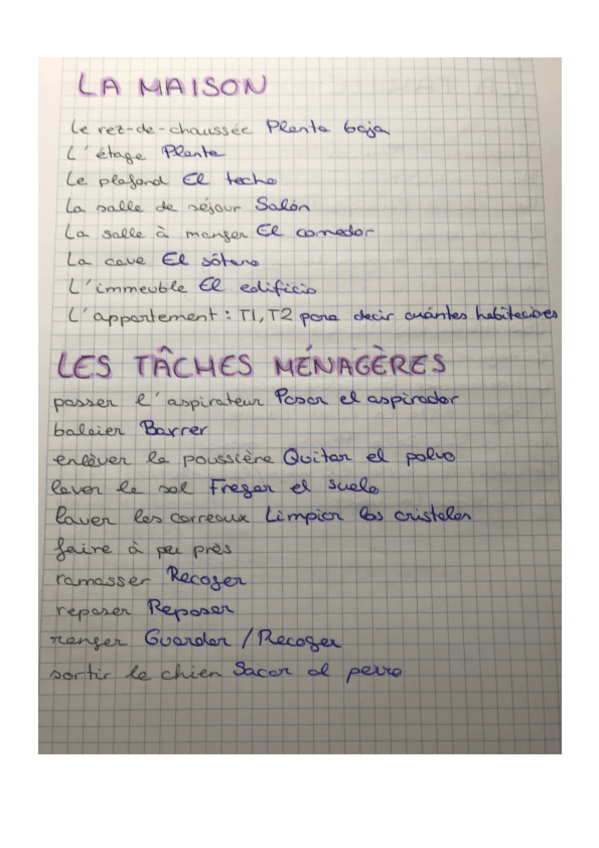 LA MAISON
Le rez-de-chaussée Planta baja
L'étage Planta
Le plafond El techo
La salle de séjour Salón
La salle à manger El comedor
La cave El sótano
L'immeuble El edificio
L'appartement : T1, T2 para decir cuántas habitaciones
LES TÂCHES MÉNAGÈRES
passer l'aspirateur Pasar el aspirador
balaier Barrer
enlèver la poussière Quitar el polvo
laver le sol Fregar el suelo
laver les carreaux Limpiar los cristales
faire à peu près
ramasser Recoger
repasser Reposar
ranger Guardar / Recoger
sortir le chien Sacar al perro